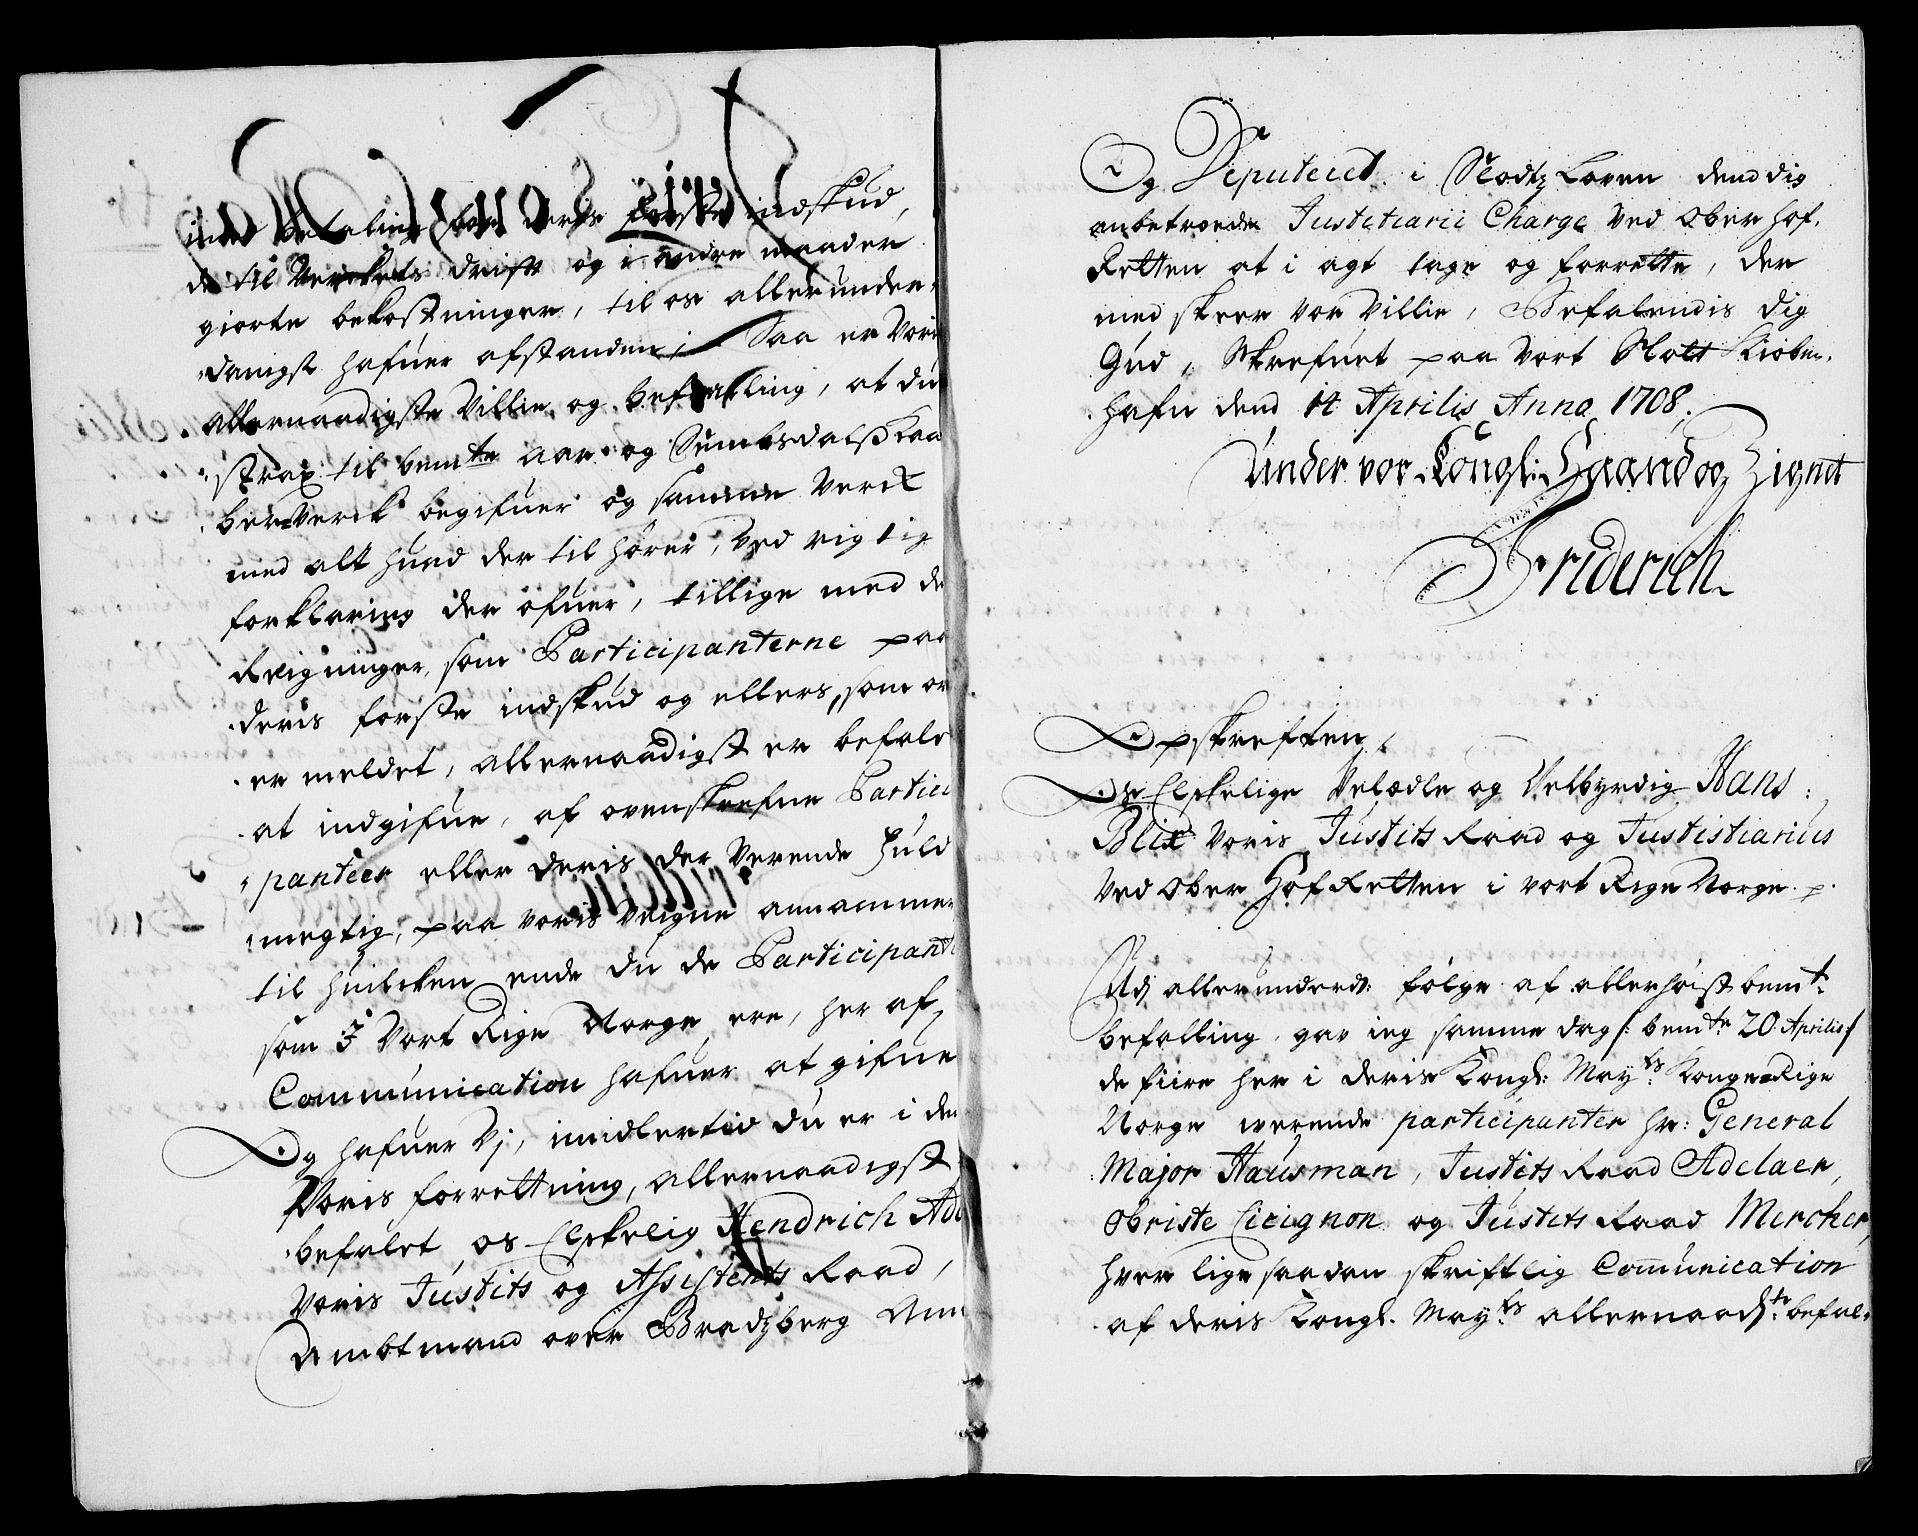 betaling for deris første indskud,
de til Verckets drift og i andre maader
giorte bekostninger, til os allerunder-
danigst hafuer afstanden; Saa er Voris
allernaadigste Villie og befalling, at du
strax til bemte Aar og Sumbsdalß Kaa
berverck begifuer og samme Verck
med alt huad der til hører, ved rigtig
forklaring der ofuer, tillige med de
Reigninger, som Participanterne paa
deris første indskud og ellers, som or
er meldet, allernaadigst er befalet
at indgifue, af ovenskrefne Partici
panter eller deris der verende Fuld
megtig, paa voris Veigne annammer
til huilcken ende du de Participanter
som i Vort Rige Norge ere, her af
Communication hafuer at gifue
Og hafuer Vj, imidlertid du er i den
Voris forrettning, allernaadigst
befalet os Elskelig Hendrich Ade
Voris Justits og Assistents Raad,
Ambtmand over Bradzberg Am
Og Deputeret i Slodtz Loven dend dig
anbetroede Justitiarii Charge ved Ober Hof.
Retten at i agt tage og forrette, Der
med skeer vor Villie, Befalendis dig
Gud, Skrefuet paa Vort Slott Kiøben.
hafn dend 14 Aprilis Anno 1708.
Under vor Kongl: Haand og Zignet
Friderich
Opskreften,
Os Elskelige Velædle og Velbyrdig Hans
Blix Voris Justits Raad og Justistiarius
Ved Ober Hof Retten i vort Rige Norge. p.
Udj allerunderd: følge af allerhøist bemt.
befalling gav ieg samme dag /: bemte 20 Aprilis :/
de fiire her i deris Kongl: Mayts Konge Rige
Norge werende participanter hr: General
Major Hausman, Justits Raad Adelaer,
Obriste Cicignon og Justits Raad Mercher,
hver lige saadan skriftlig Comunication
af deris Kongl. Mayts allernaadste befal-